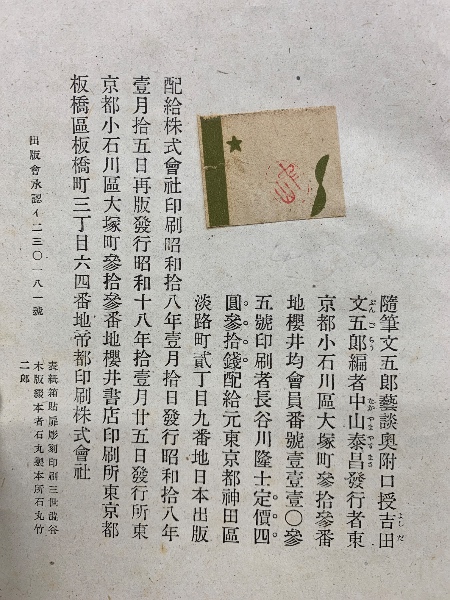 隨筆文五郎藝談奧附口授吉田
文五郎編者中山泰昌發行者東
京都小石川區大塚町參拾參番
地櫻井均會員番號壹壹壹〇參
五號印刷者長谷川隆士定價四
圓參拾錢配給元東京都神田區
淡路町貳丁目九番地日本出版
配給株式會社印刷昭和拾八年壹月拾日發行昭和拾八年
壹月拾五日再版發行昭和十八年拾壹月廿五日發行所東
京都小石川區大塚町參拾參番地櫻井書店印刷所東京都
板橋區板橋町三丁目六四番地帝都印刷株式會社
出版會承認イ二三〇一八一號
表紙箱貼扉彫刻印刷三世澁谷
木版製本者石丸製本所石丸竹
二郎